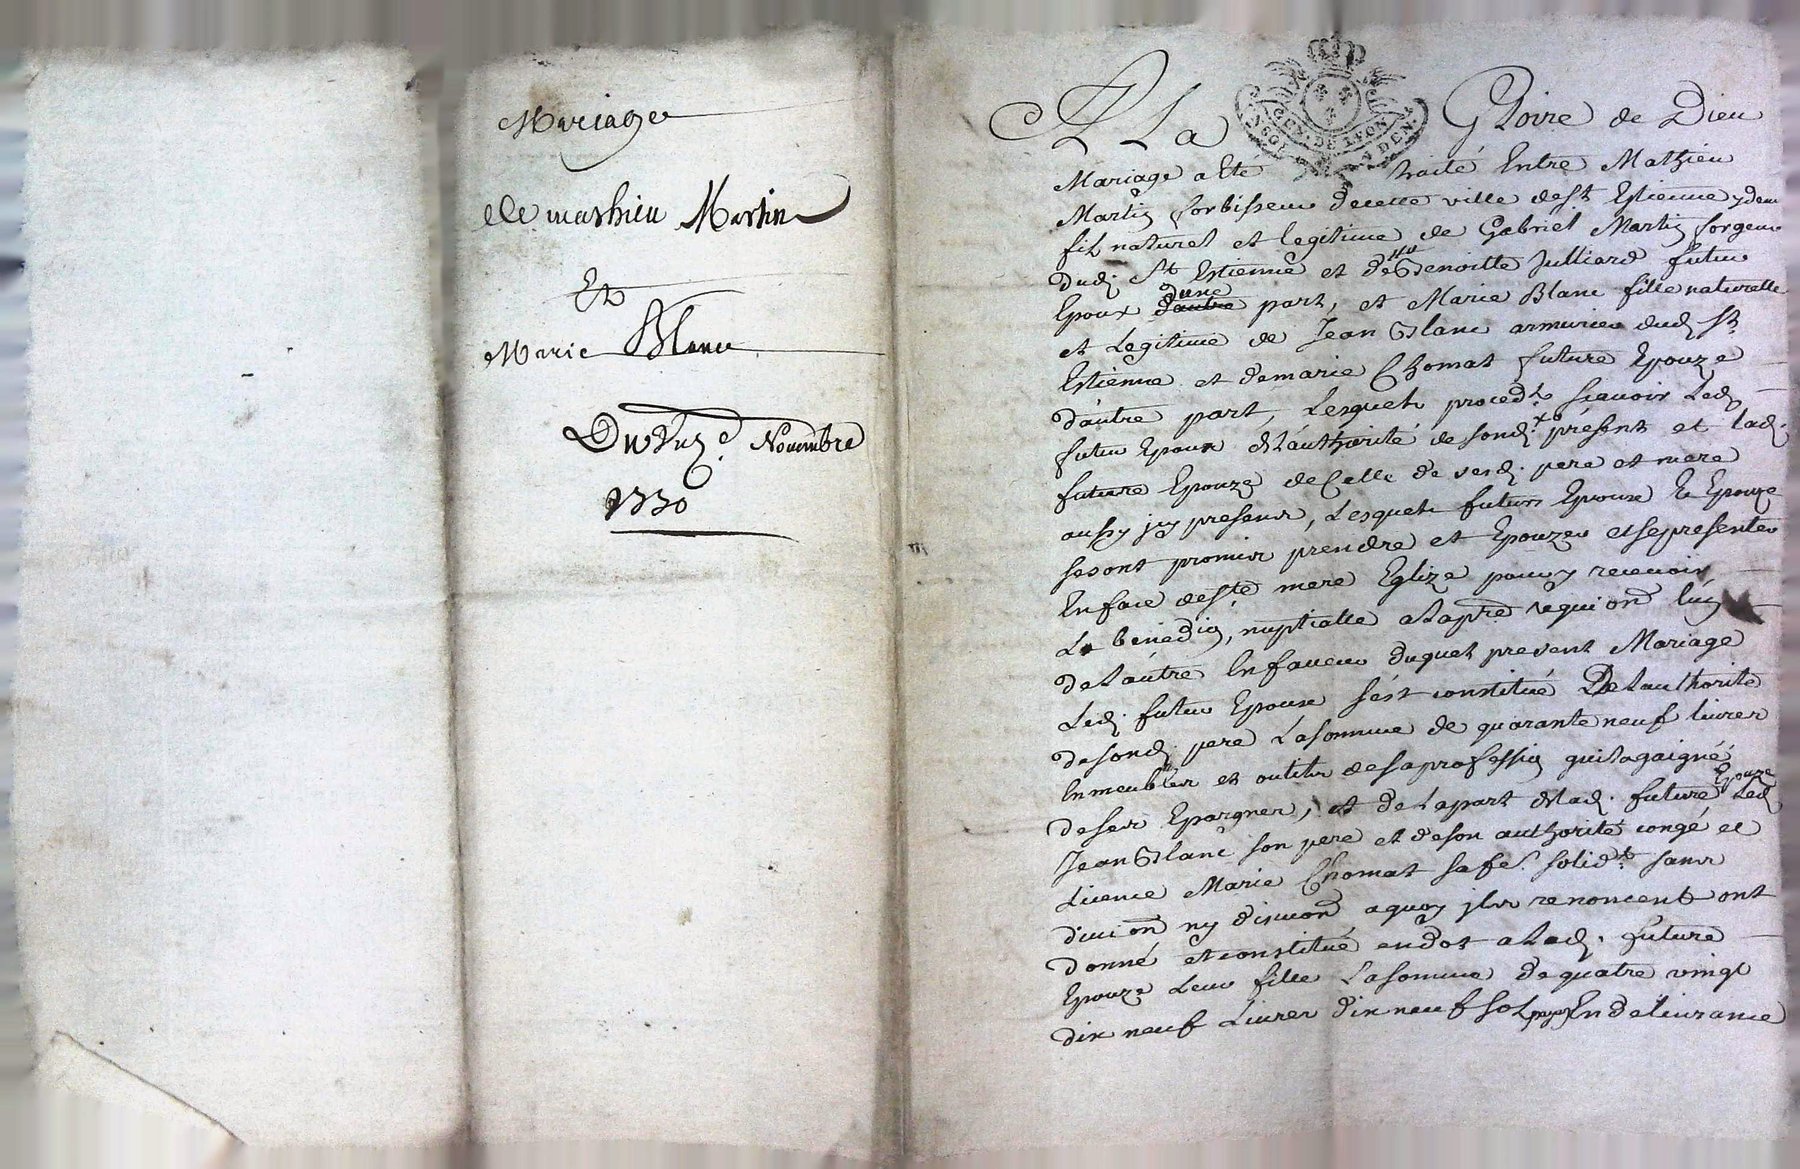 Mariage
de mathieu Martin
Et
Marie Blanc
Du Vnze. Novembre
1730
A La Gloire de Dieu
GEN. DE LYON
Mariage a Eté traité Entre Mathieu
Martin forbisseur de cette ville de st Estienne
fils naturel et legitime de Gabriel Martin forgeur
dudi St Estienne et de Benoitte Julliard futeur
Epoux d'autre dune part, et Marie Blanc fille naturelle
et Legitime de Jean Blanc armurier dudi St
Estienne et de marie Chomat future Epouze
d'autre part, Lesquels procedt scavoir Ledi
futeur Epoux de l'authorité de sondi. present et ladi.
future Epouze de Celle de sesdi. pere et mere
aussy jcy presents, Lesquels futurs Epoux et Epouze
se sont promis prendre et Epouzer et se presenter
En face de ste mere Eglize pour y recevoir
La bénédion, nuptialle a La pre requion Lun
de L'autre En faveur duquel present Mariage
Ledi. futeur Epoux s'est constitué De l'authorite
de sondi. pere La somme de quarante neuf livres
En meubles et outils de sa profession quil a gaigné
de ses Epargnes, et de La part de Ladi. future Epouze Ledi
Jean Blanc son pere et de son authorité congé et
Licence Marie Chomat sa fe. solidt. sans
division ny discuon a quoy jls renoncent ont
donné et constitué en dot a Ladi. future
Epouze Leur fille La somme de quatre vingt
dix neuf Livres dix neuf sols En delivrance